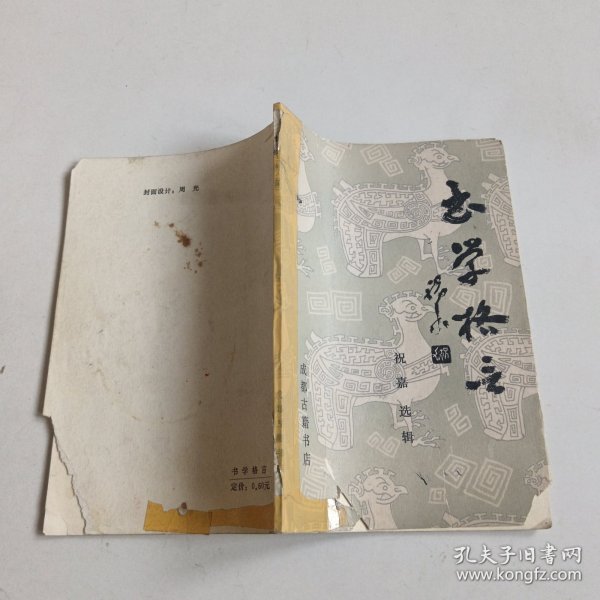 书学格言
祝嘉选辑
成都古籍书店
封面设计：周 光
书学格言
定价：0.60元
孔夫子旧书网
www.kongfz.com